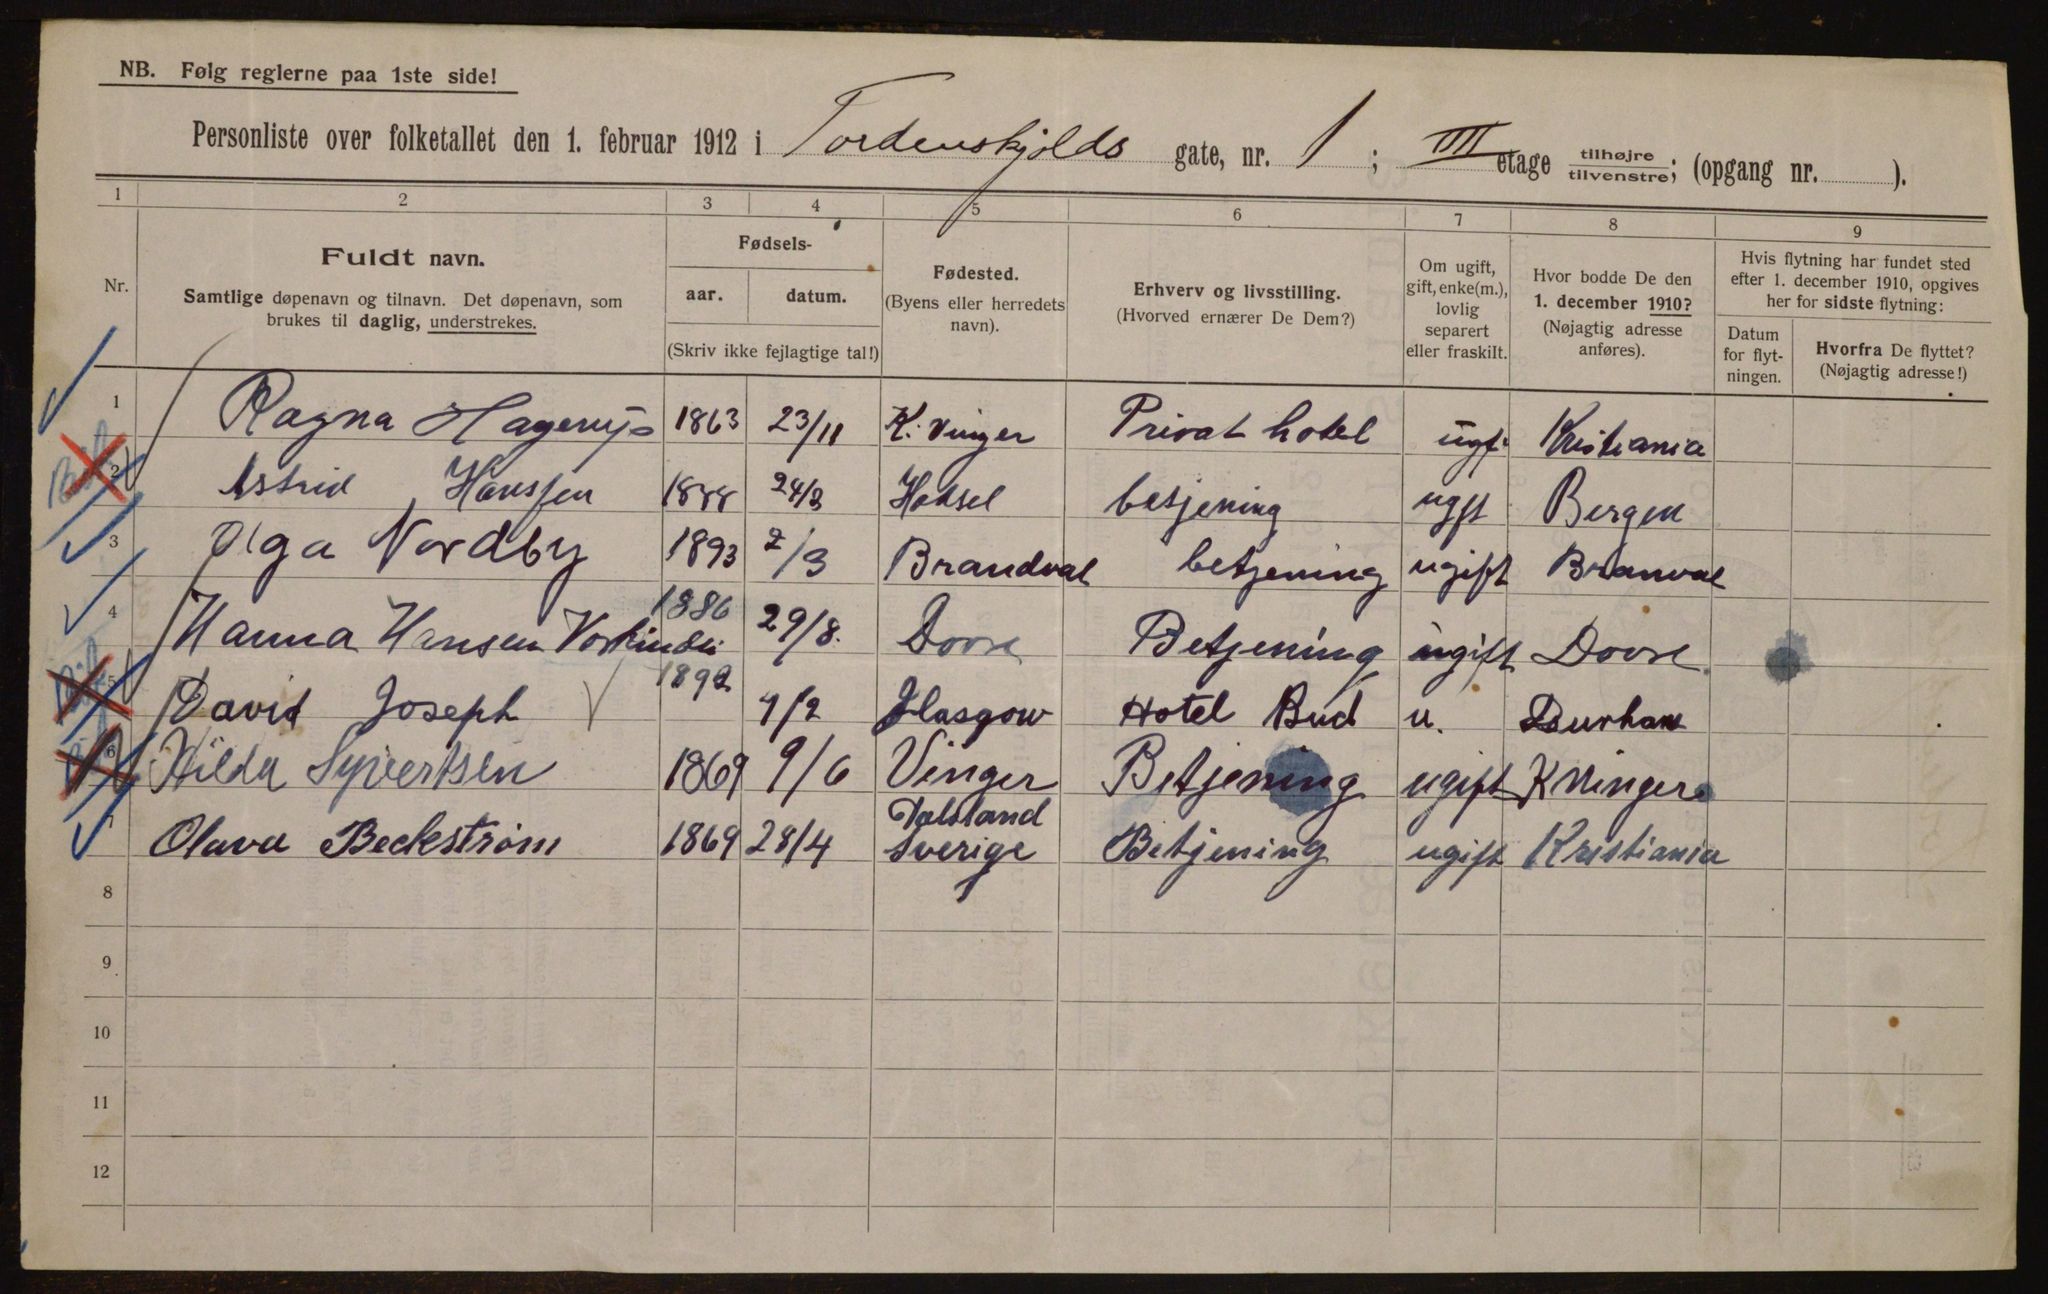 NB. Følg reglerne paa 1ste side!
Personliste over folketallet den 1. februar 1912 i Tordenskjolds gate, nr. 1 ; III etage tilhøjre/tilvenstre; (opgang nr. ).
1 2 3 4 5 6 7 8 9
Nr.
Fuldt navn.
Samtlige døpenavn og tilnavn. Det døpenavn, som
brukes til daglig, understrekes.
Fødsels-
aar. datum.
(Skriv ikke fejlagtige tal!)
Fødested.
(Byens eller herredets
navn).
Erhverv og livsstilling.
(Hvorved ernærer De Dem?)
Om ugift,
gift, enke(m.),
lovlig
separert
eller fraskilt.
Hvor bodde De den
1. december 1910?
(Nøjagtig adresse
anføres).
Hvis flytning har fundet sted
efter 1. december 1910, opgives
her for sidste flytning:
Datum
for flyt-
ningen.
Hvorfra De flyttet?
(Nøjagtig adresse!)
1 Ragna Hagerup 1863 23/11 K. vinger Privat hotel ugf. Kristiania
2 Astrid Hansfen 1888 24/3 Hadsel betjening ugft Bergen
3 Olga Nordby 1893 2/3 Brandval betjening ugift Branval
4 Hanna Hansen 1886 29/8. Dovre Betjening ugift Dovre
5 David Joseph 1892 7/2 Glasgow Hotel Bud u. Durham
6 Hilda Syvertsen 1869 9/6 Vinger Betjening ugift K Vinger
7 Olava Beckstrøm 1869 28/4 Dalsland Sverige Betjening ugift Kristiania
8
9
10
11
12